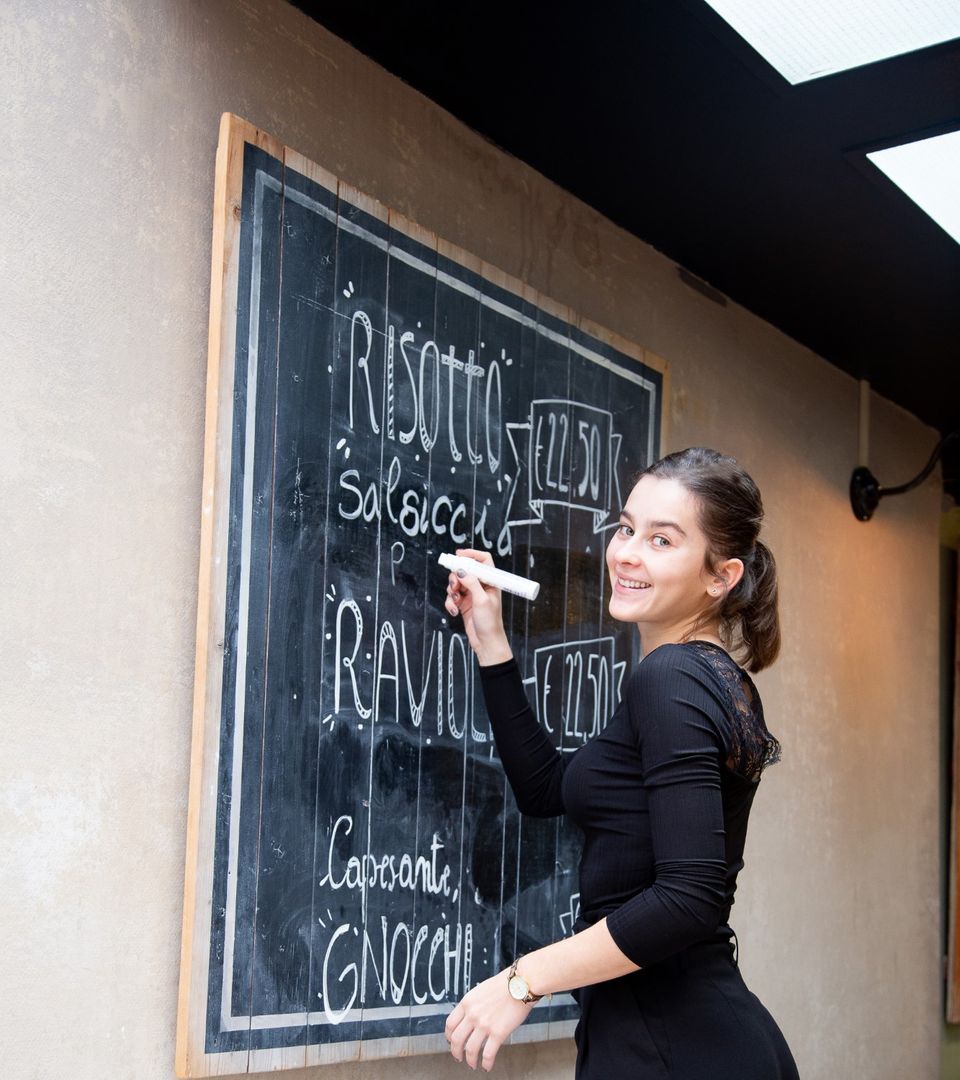 RISOTTO
€22.50
Salsiccia
P
RAVIOLI
€22,50
Capesante,
GNOCCHI